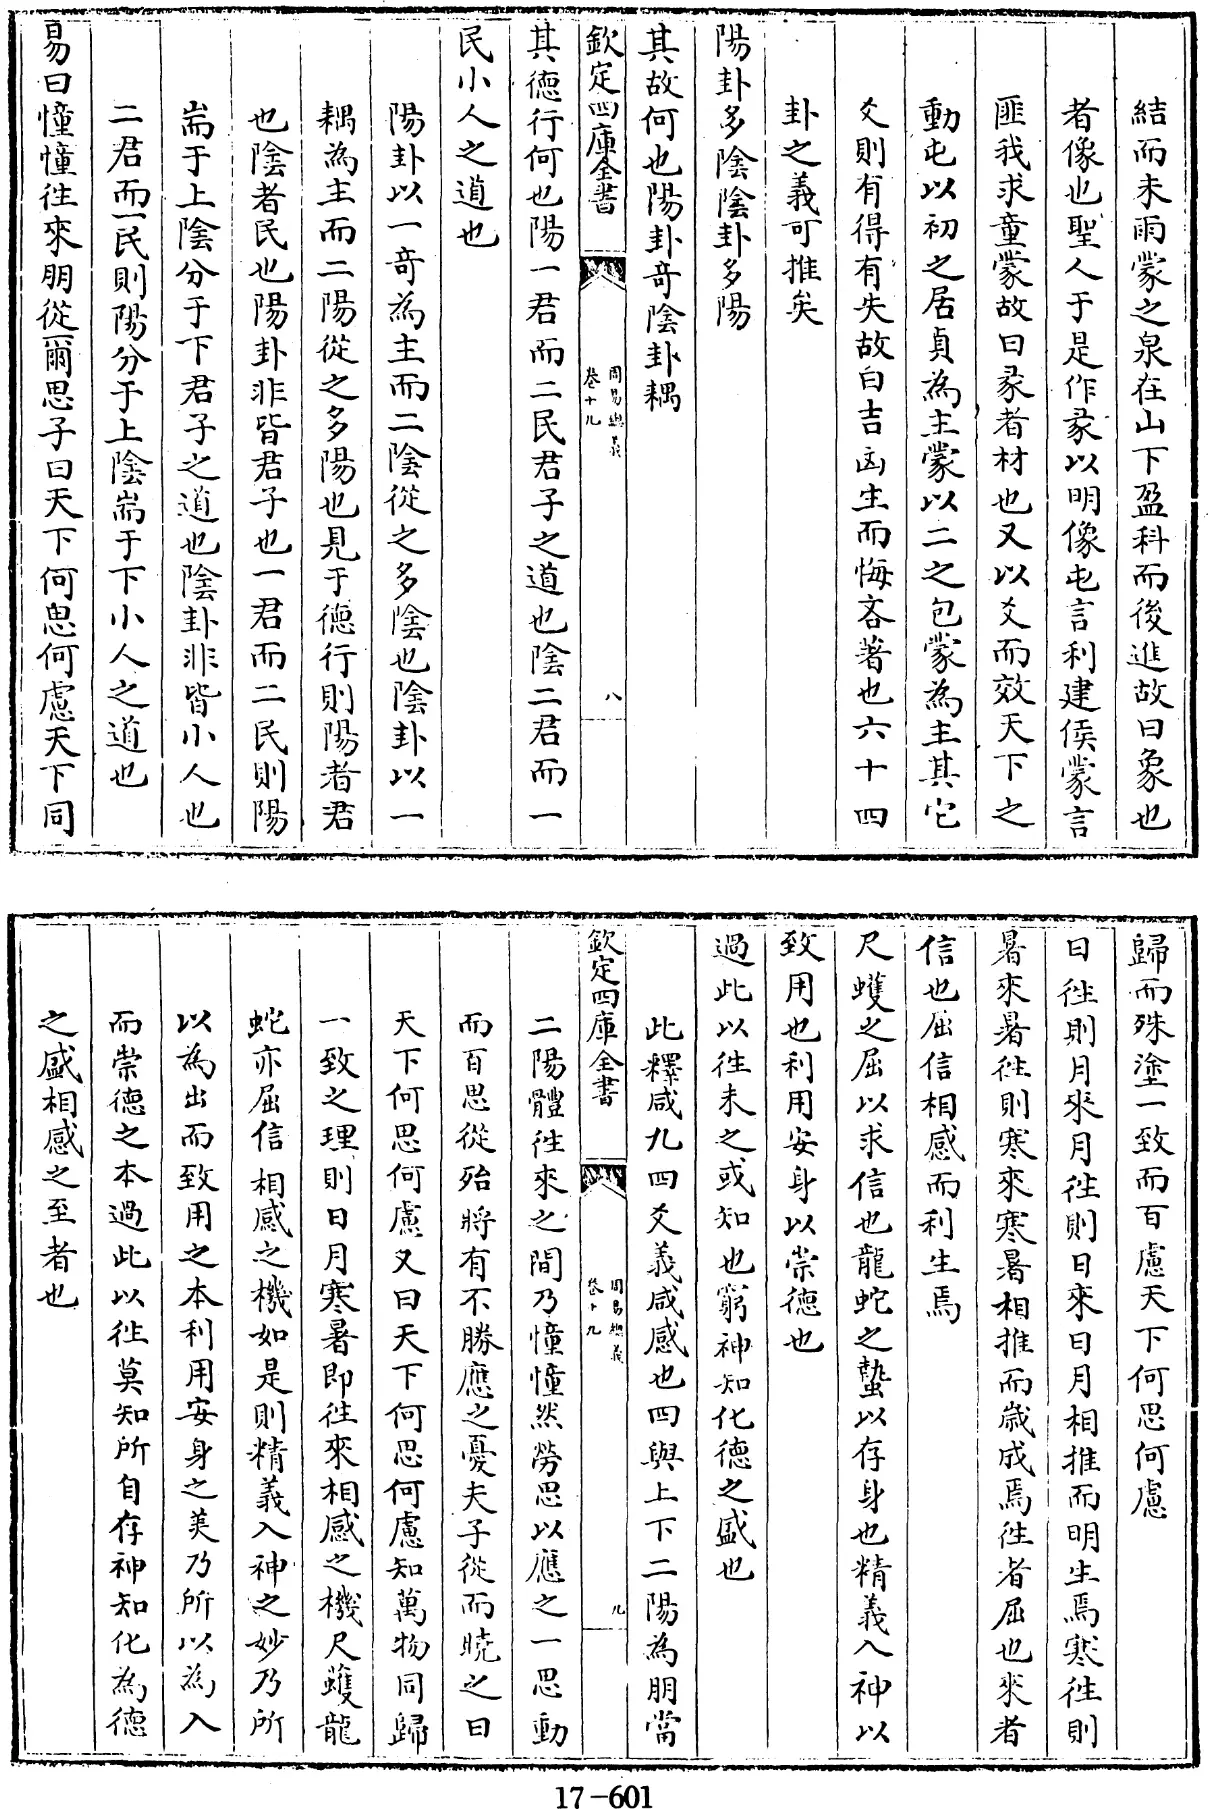 結而未雨蒙之泉在山下盈科而後進故曰象也
者像也聖人于是作彖以明像屯言利建侯蒙言
匪我求童蒙故曰彖者材也又以爻而效天下之
動屯以初之居貞為主蒙以二之包蒙為主其它
爻則有得有失故曰吉凶生而悔吝著也六十四
卦之義可推矣
陽卦多陰陰卦多陽
其故何也陽卦奇陰卦耦
欽定四庫全書
周易輿義
卷十九
八
其德行何也陽一君而二民君子之道也陰二君而一
民小人之道也
陽卦以一奇為主而二陰從之多陰也陰卦以一
耦為主而二陽從之多陽也見于德行則陽者君
也陰者民也陽卦非皆君子也一君而二民則陽
耑于上陰分于下君子之道也陰卦非皆小人也
二君而一民則陽分于上陰耑于下小人之道也
易曰憧憧往來朋從爾思子曰天下何思何慮天下同
歸而殊塗一致而百慮天下何思何慮
日往則月來月往則日來日月相推而明生焉寒往則
暑來暑往則寒來寒暑相推而歲成焉往者屈也來者
信也屈信相感而利生焉
尺蠖之屈以求信也龍蛇之蟄以存身也精義入神以
致用也利用安身以崇德也
過此以往未之或知也窮神知化德之盛也
此釋咸九四爻義咸感也四與上下二陽為朋當
欽定四庫全書
卷十九
九
二陽體往來之間乃憧憧然勞思以應之一思動
而百思從殆將有不勝應之憂夫子從而曉之曰
天下何思何慮又曰天下何思何慮知萬物同歸
一致之理則日月寒暑即往來相感之機尺蠖龍
蛇亦屈信相感之機如是則精義入神之妙乃所
以為出而致用之本利用安身之美乃所以為入
而崇德之本過此以往莫知所自存神知化為德
之盛相感之至者也
17-601